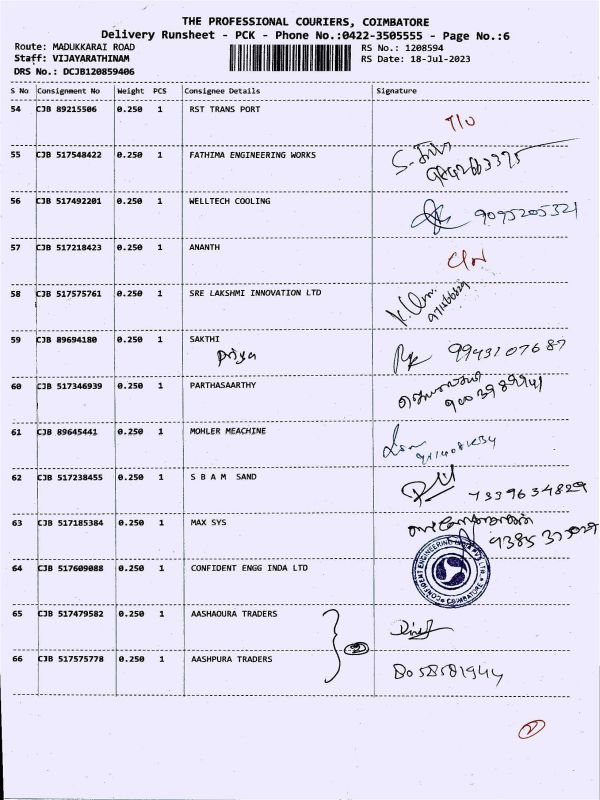 THE PROFESSIONAL COURIERS, COIMBATORE
Delivery Runsheet - PCK - Phone No.:0422-3505555 - Page No.:6
Route: MADUKKARAI ROAD RS No.: 1208594
Staff: VIJAYARATHINAM RS Date: 18-Jul-2023
DRS No.: DCJB120859406
S No Consignment No Weight PCS Consignee Details Signature
54 CJB 89215506 0.250 1 RST TRANS PORT
55 CJB 517548422 0.250 1 FATHIMA ENGINEERING WORKS
56 CJB 517492201 0.250 1 WELLTECH COOLING 9095205321
57 CJB 517218423 0.250 1 ANANTH
58 CJB 517575761 0.250 1 SRE LAKSHMI INNOVATION LTD
59 CJB 89694180 0.250 1 SAKTHI
Priya 9943107687
60 CJB 517346939 0.250 1 PARTHASAARTHY
61 CJB 89645441 0.250 1 MOHLER MEACHINE
62 CJB 517238455 0.250 1 S B A M SAND 7339634829
63 CJB 517185384 0.250 1 MAX SYS
64 CJB 517609088 0.250 1 CONFIDENT ENGG INDA LTD
65 CJB 517479582 0.250 1 AASHAOURA TRADERS
2
66 CJB 517575778 0.250 1 AASHPURA TRADERS
2